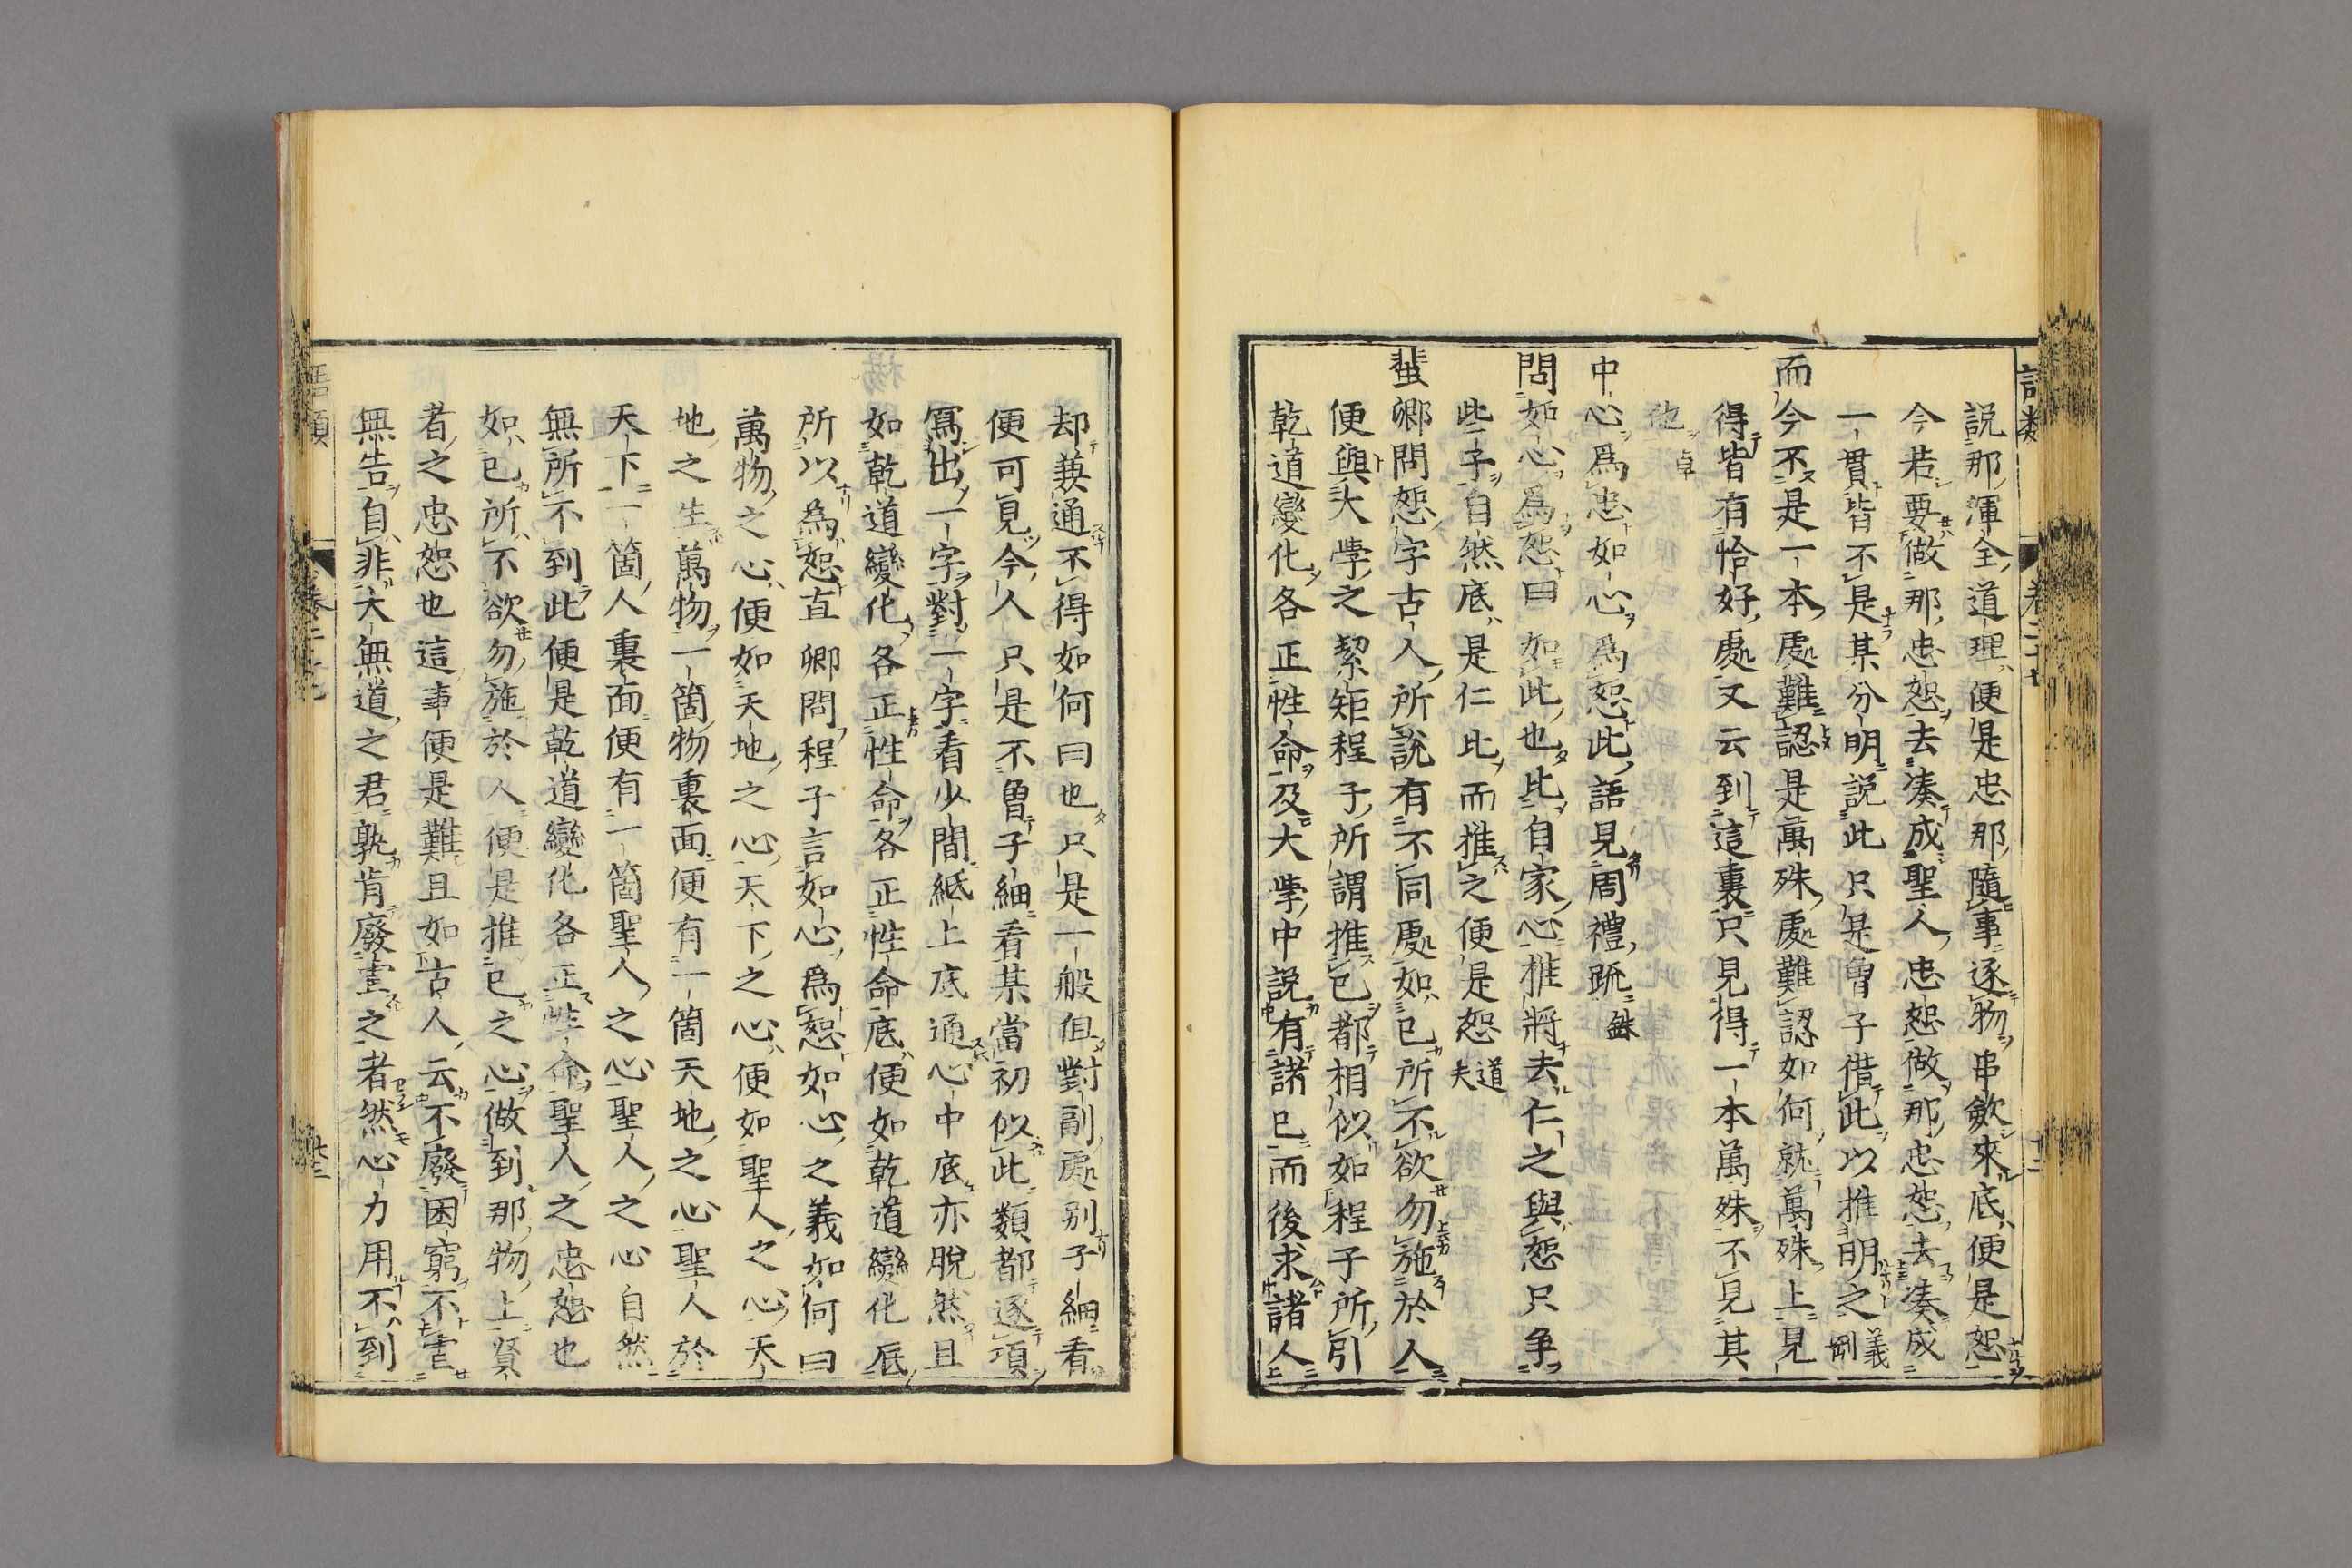 説那渾全道理便是忠那隨事逐物串歛來底便是恕
今若要做那忠恕去湊成聖人忠恕做那忠恕去湊成
一貫皆不是某分明説此只是曾子借此以推明之義剛
而今不是一本處難認是萬殊處難認如何就萬殊上見
得皆有恰好處又云到這裏只見得一本萬殊不見其
他卓
中心爲忠如心爲恕此語見周禮疏銖
問如心爲恕曰如此也比自家心推將去仁之與恕只争
些子自然底是仁比而推之便是恕道夫
蜚卿問恕字古人所說有不同處如已所不欲勿施於人
便與大學之絜矩程子所謂推已都相似如程子所引
乾道變化各正性命及大學中説有諸已而後求諸人
却兼通不得如何曰也只是一般但對副處别子細看
便可見今人只是不曾子細看某當初似此類都逐項
冩出一字對一字看少間紙上底通心中底亦脫然且
如乾道變化各正性命各正性命底便如乾道變化底
所以爲恕直卿問程子言如心爲恕如心之義如何曰
萬物之心便如天地之心天下之心便如聖人之心天
地之生萬物一箇物裏面便有一箇天地之心聖人於
天下一箇人裏面便有一箇聖人之心聖人之心自然
無所不到此便是乾道變化各正性命聖人之忠恕也
如已所不欲勿施於人便是推已之心做到那物上賢
者之忠恕也這事便是難且如古人云不廢困窮不虐
無告自非大無道之君孰肯廢虐之者然心力用不到